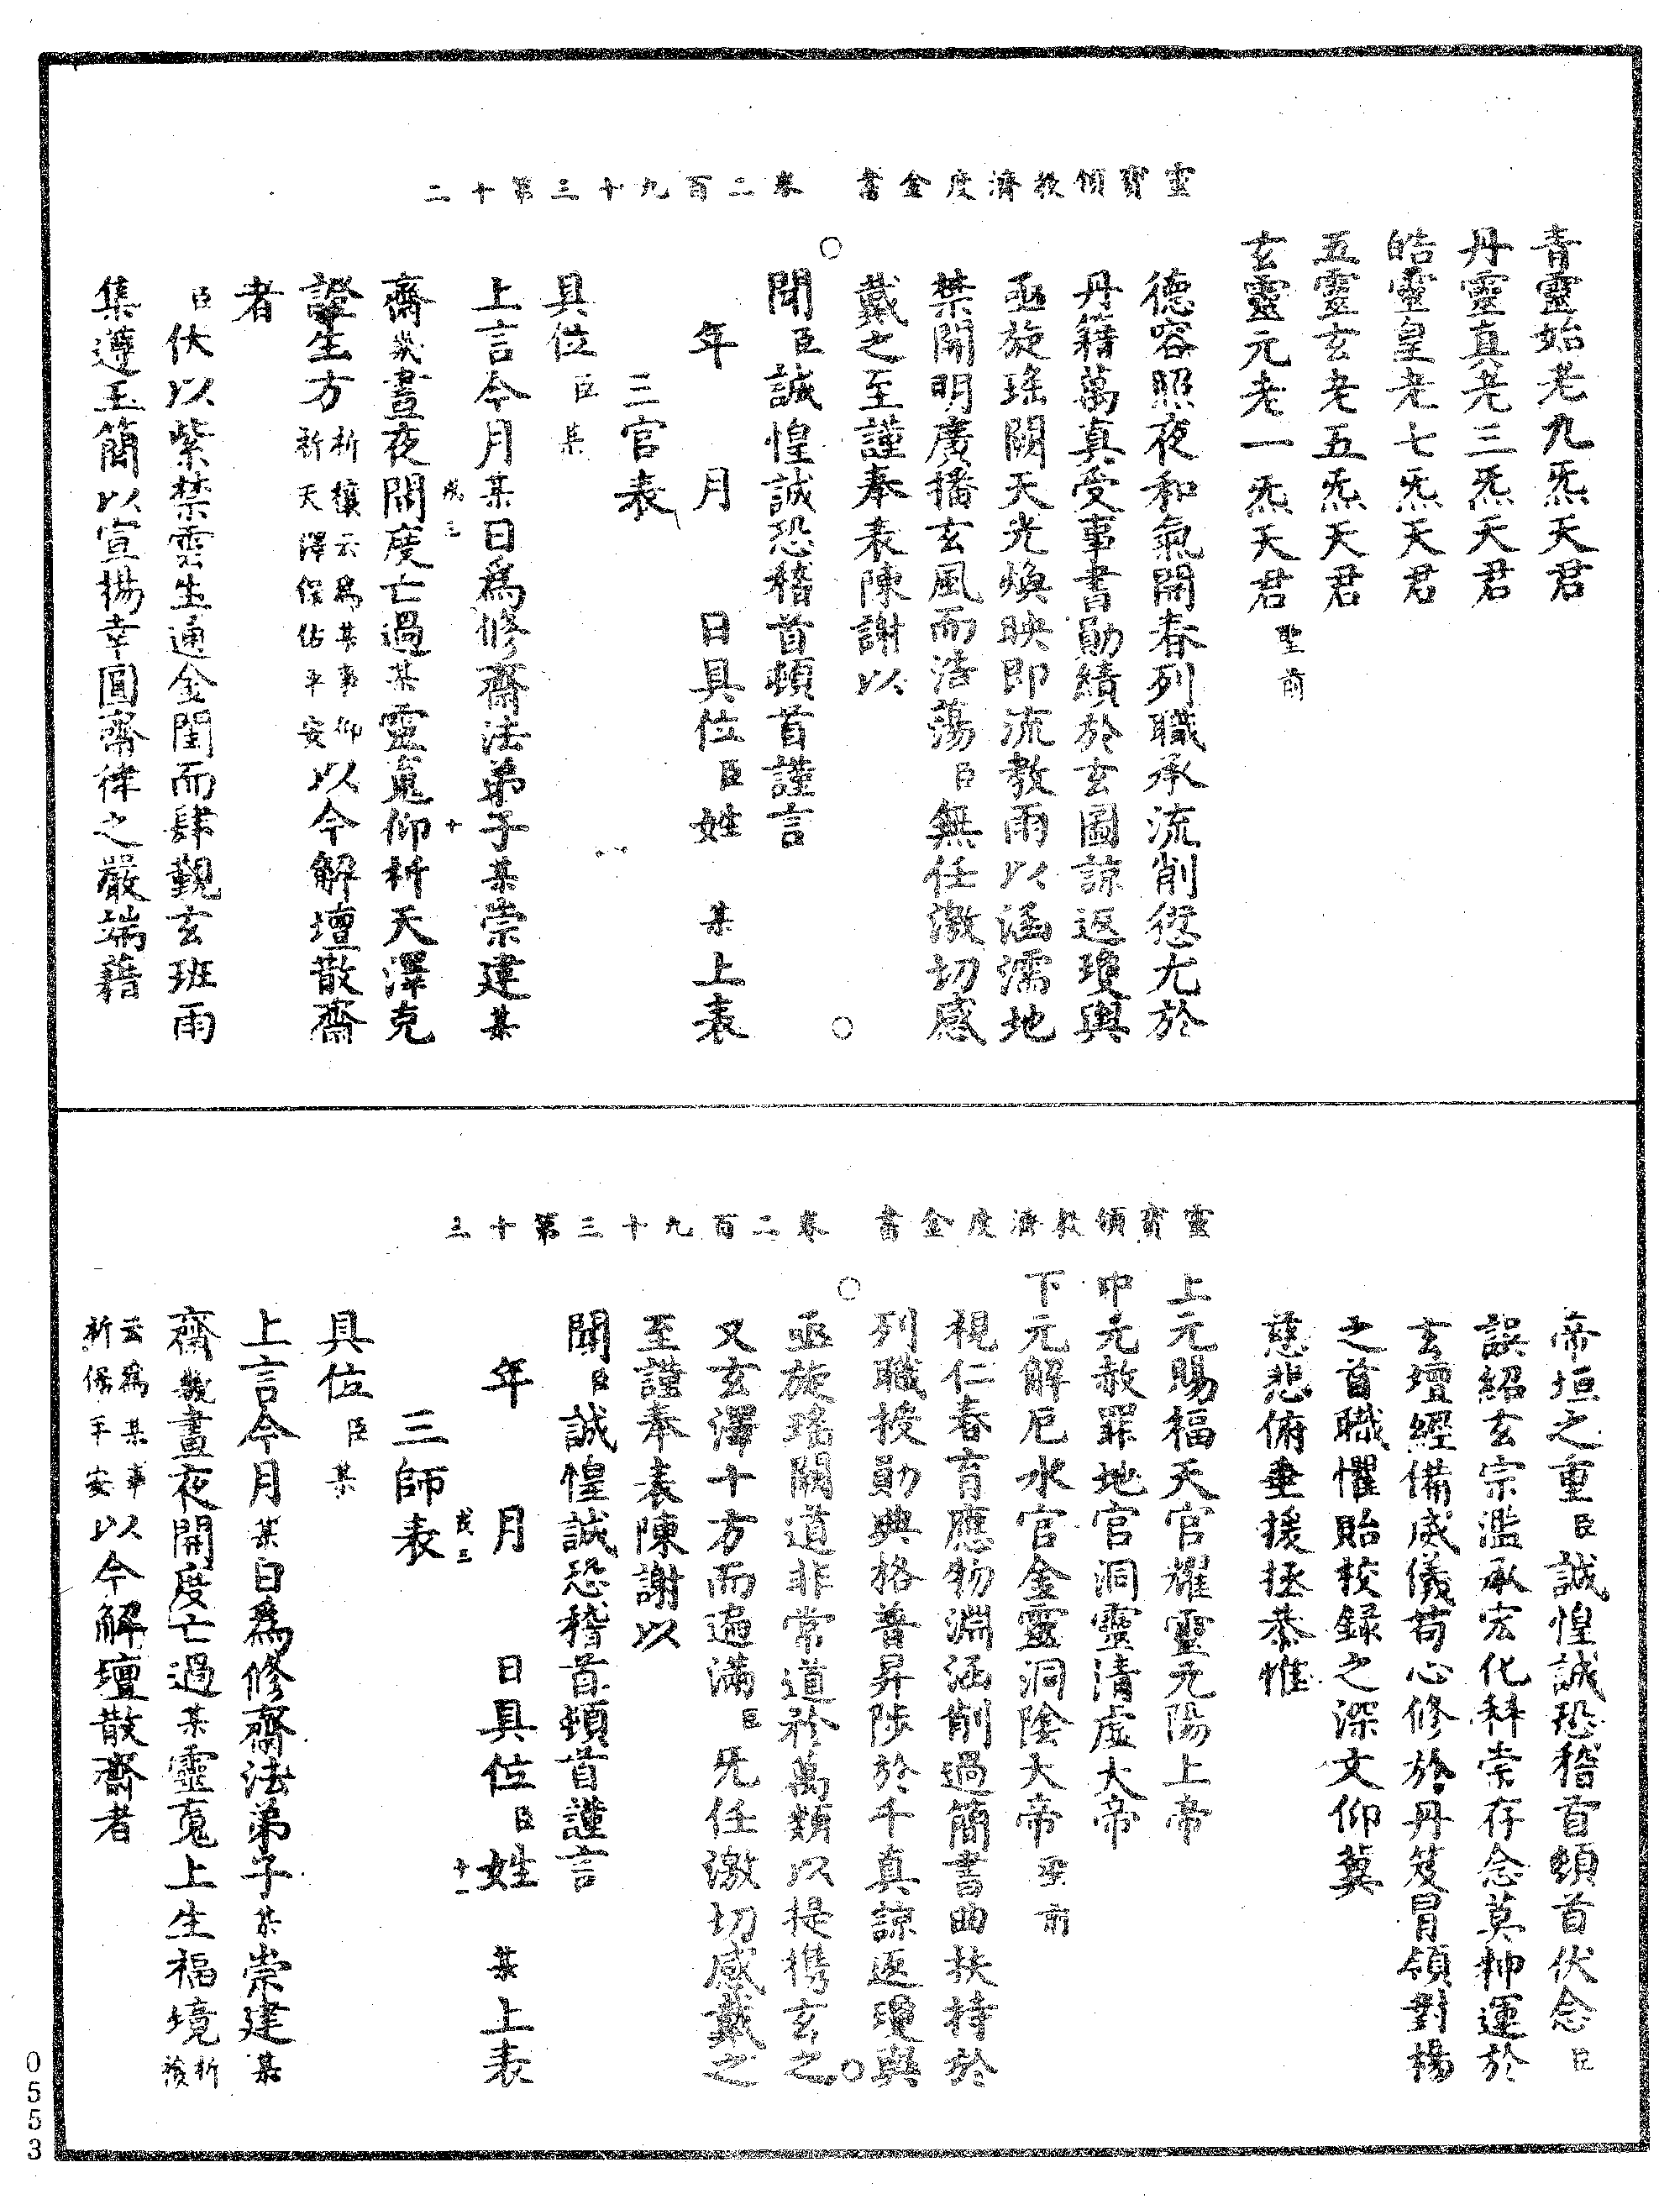 靈寶領教濟度金書　卷二百九十三第十二
青靈始老九炁天君
丹靈真老三炁天君
皓靈皇老七炁天君
五靈玄老五炁天君
玄靈元老一炁天君聖前
德容照夜和氣開春列職承流削愆尤於
丹籍萬真受事書勛績於玄圖諒返瓊輿
亟旋瑤闕天光煥映即流教雨以涵濡地
禁開明廣播玄風而浩蕩臣無任激切感
戴之至謹奉表陳謝以
聞臣誠惶誠恐稽首頓首謹言
年　月　日具位臣姓　某上表
三官表
具位臣某
上言今月某日爲修齋法弟子某崇建某
戌三　十
齋幾晝夜開度亡過某靈䰟仰祈天澤克
證生方祈禳云爲某事仰
祈天澤保佑平安以今解壇散齋
者
臣伏以紫禁雲生通金閨而肆覲玄班雨
集遵玉簡以宣揚幸圓齋律之嚴端藉
靈寶領教濟度金書　卷二百九十三第十三
帝垣之重臣誠惶誠恐稽首頓首伏念臣
誤紹玄宗濫承宏化科崇存念莫神運於
玄壇經備威儀苟心修於丹笈冒領對揚
之首職懼貽校録之深文仰冀
慈悲俯垂援拯恭惟
上元賜福天官耀靈元陽上帝
中元赦罪地官洞靈清虛大帝
下元解厄水官金靈洞陰大帝聖前
視仁春育應物淵涵削過簡書曲扶持於
列職授勛典格普昇陟於千真諒返瓊輿
亟旋瑤闕道非常道於萬類以提携玄之
又玄澤十方而遍滿臣无任激切感戴之
至謹奉表陳謝以
聞臣誠惶誠恐稽首頓首謹言
年　月　日具位臣姓　某上表
戌三　十一
三師表
具位臣某
上言今月某日爲修齋法弟子某崇建某
齋幾晝夜開度亡過某靈䰟上生福境祈
禳
云爲某事
祈保平安以今解壇散齋者
0553